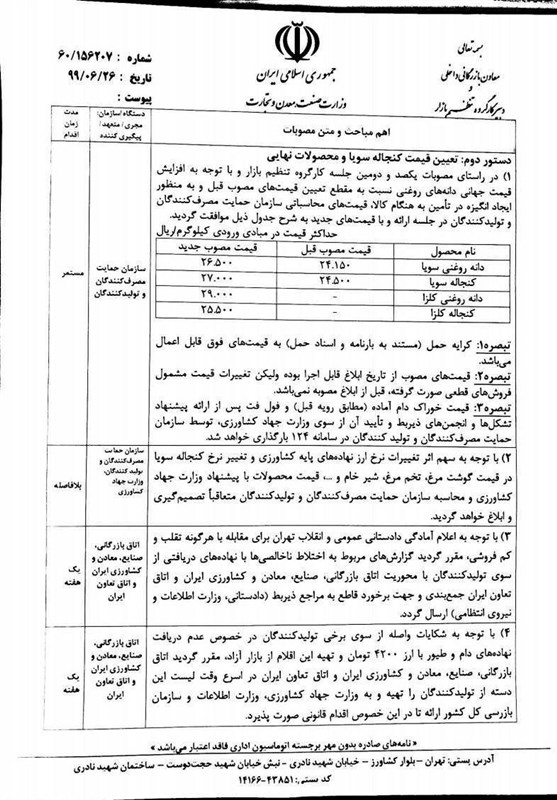 بسمه تعالی
معاون بازرگانی داخلی
و
دبیر کارگروه تنظیم بازار
جمهوری اسلامی ایران
وزارت صنعت، معدن و تجارت
شماره : ۶۰/۱۵۶۲۰۷
تاریخ : ۹۹/۰۶/۲۶
پیوست :
اهم مباحث و متن مصوبات
دستگاه/سازمان/
مجری / متعهد/
پیگیری کننده
مدت
زمان
اقدام
دستور دوم: تعیین قیمت کنجاله سویا و محصولات نهایی
۱) در راستای مصوبات یکصد و دومین جلسه کارگروه تنظیم بازار و با توجه به افزایش
قیمت جهانی دانه‌های روغنی نسبت به مقطع تعیین قیمت‌های مصوب قبل و به منظور
ایجاد انگیزه در تأمین به هنگام کالا، قیمت‌های محاسباتی سازمان حمایت مصرف‌کنندگان
و تولیدکنندگان در جلسه ارائه و با قیمت‌های جدید به شرح جدول ذیل موافقت گردید.
حداکثر قیمت در مبادی ورودی کیلوگرم/ریال
نام محصول قیمت مصوب قبل قیمت مصوب جدید
دانه روغنی سویا ۲۴.۱۵۰ ۲۶.۵۰۰
کنجاله سویا ۲۴.۵۰۰ ۲۷.۰۰۰
دانه روغنی کلزا - ۲۹.۰۰۰
کنجاله کلزا - ۲۵.۵۰۰
تبصره۱: کرایه حمل (مستند به بارنامه و اسناد حمل) به قیمت‌های فوق قابل اعمال
می‌باشد.
تبصره۲: قیمت‌های مصوب از تاریخ ابلاغ قابل اجرا بوده ولیکن تغییرات قیمت مشمول
فروش‌های قطعی صورت گرفته، قبل از ابلاغ مصوبه نمی‌باشد.
تبصره۳: قیمت خوراک دام آماده (مطابق رویه قبل) و فول فت پس از ارائه پیشنهاد
تشکل‌ها و انجمن‌های ذیربط و تأیید آن از سوی وزارت جهاد کشاورزی، توسط سازمان
حمایت مصرف‌کنندگان و تولید کنندگان در سامانه ۱۲۴ بارگذاری خواهد شد.
سازمان حمایت
مصرف‌کنندگان
و تولیدکنندگان
مستمر
۲) با توجه به سهم اثر تغییرات نرخ ارز نهاده‌های پایه کشاورزی و تغییر نرخ کنجاله سویا
در قیمت گوشت مرغ، تخم مرغ، شیر خام و ...، قیمت محصولات با پیشنهاد وزارت جهاد
کشاورزی و محاسبه سازمان حمایت مصرف‌کنندگان و تولیدکنندگان متعاقباً تصمیم‌گیری
و ابلاغ خواهد گردید.
سازمان حمایت
مصرف‌کنندگان و
تولید کنندگان،
وزارت جهاد
کشاورزی
بلافاصله
۳) با توجه به اعلام آمادگی دادستانی عمومی و انقلاب تهران برای مقابله با هرگونه تقلب و
کم فروشی، مقرر گردید گزارش‌های مربوط به اختلاط ناخالصی‌ها با نهاده‌های دریافتی از
سوی تولیدکنندگان با محوریت اتاق بازرگانی، صنایع، معادن و کشاورزی ایران و اتاق
تعاون ایران جمع‌بندی و جهت برخورد قاطع به مراجع ذیربط (دادستانی، وزارت اطلاعات و
نیروی انتظامی) ارسال گردد.
اتاق بازرگانی،
صنایع، معادن و
کشاورزی ایران
و اتاق تعاون
ایران
یک
هفته
۴) با توجه به شکایات واصله از سوی برخی تولیدکنندگان در خصوص عدم دریافت
نهاده‌های دام و طیور با ارز ۴۲۰۰ تومان و تهیه این اقلام از بازار آزاد، مقرر گردید اتاق
بازرگانی، صنایع، معادن و کشاورزی ایران و اتاق تعاون ایران در اسرع وقت لیست این
دسته از تولیدکنندگان را تهیه و به وزارت جهاد کشاورزی، وزارت اطلاعات و سازمان
بازرسی کل کشور ارائه تا در این خصوص اقدام قانونی صورت پذیرد.
اتاق بازرگانی،
صنایع، معادن و
کشاورزی ایران
و اتاق تعاون
ایران
یک
هفته
« نامه‌های صادره بدون مهر برجسته اتوماسیون اداری فاقد اعتبار می‌باشد »
آدرس پستی: تهران -بلوار کشاورز - خیابان شهید نادری - نبش خیابان شهید حجت‌دوست - ساختمان شهید نادری
کد پستی: ۴۳۸۵۱-۱۴۱۶۶